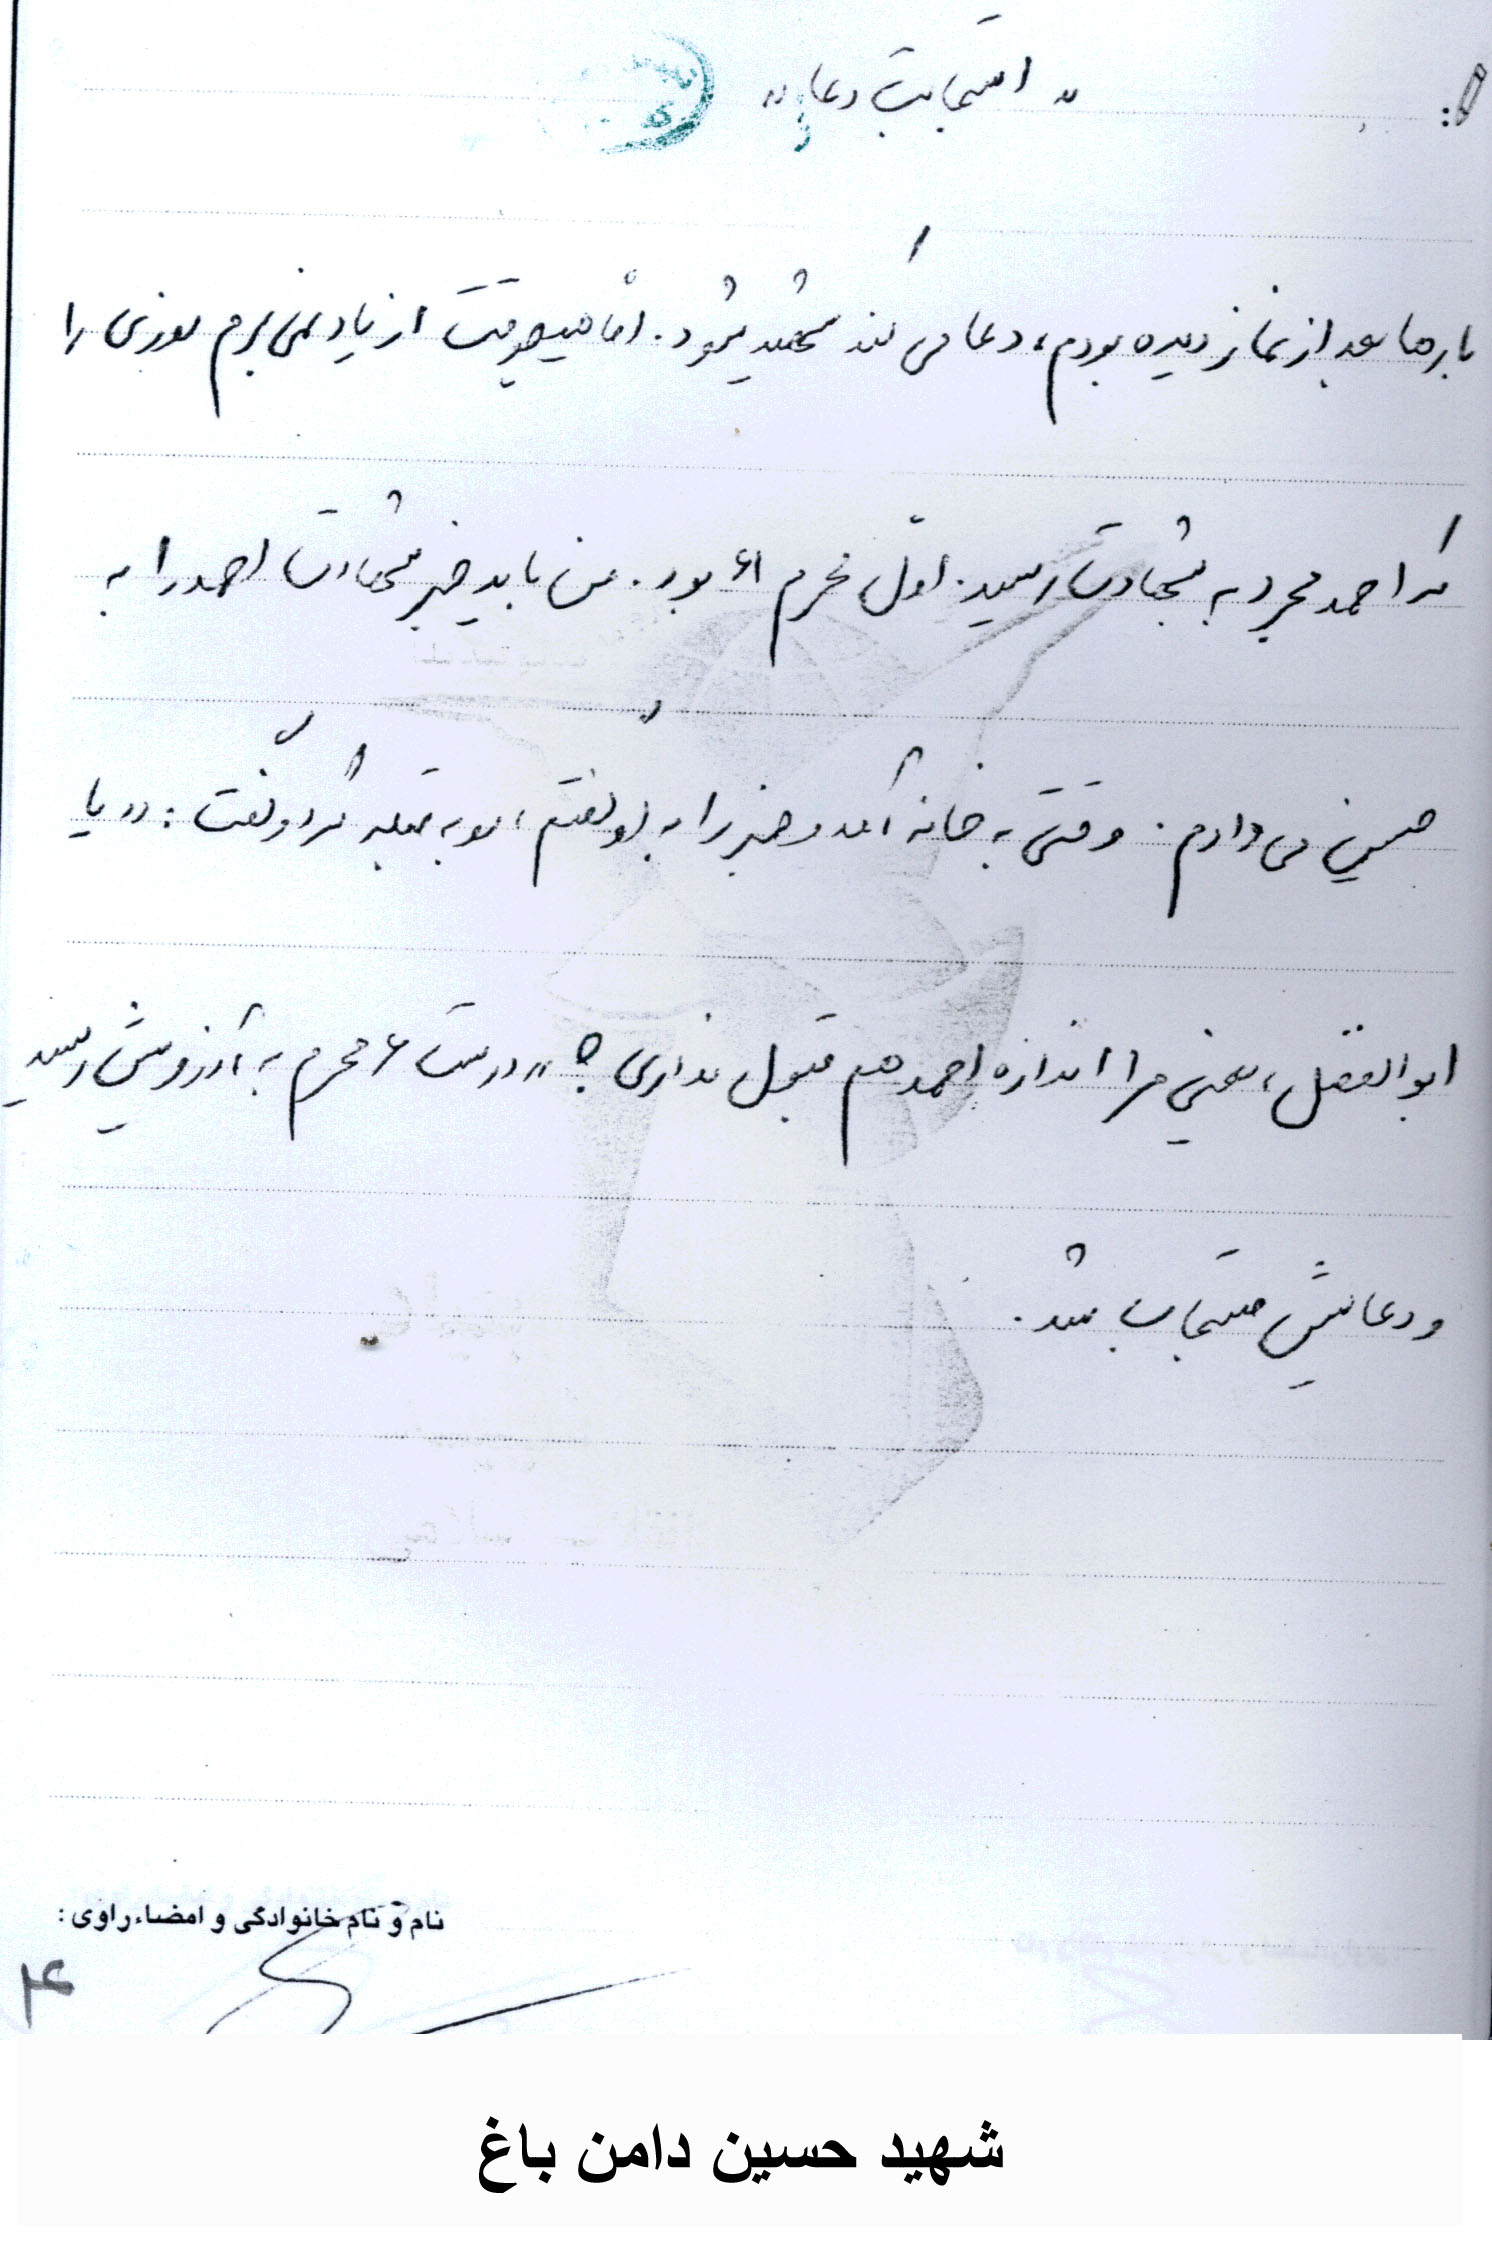 « استجابت دعا »
بارها بعد از نماز دیده بودم، دعا می کند شهید شود. امّا هیچوقت از یاد نمی برم روزی را
که احمد مجرد به شهادت رسید. اوّل محرم ۶۱ بود. من باید خبر شهادت احمد را به
حسین می دادم. وقتی به خانه آمد و خبر را به او گفتم، رو به قبله کرد و گفت: «یا
ابوالفضل، یعنی مرا اندازه احمد هم قبول نداری؟» درست ۶ محرم به آرزویش رسید
و دعایش مستجاب شد.
نام و نام خانوادگی و امضاء راوی:
۴
شهید حسین دامن باغ